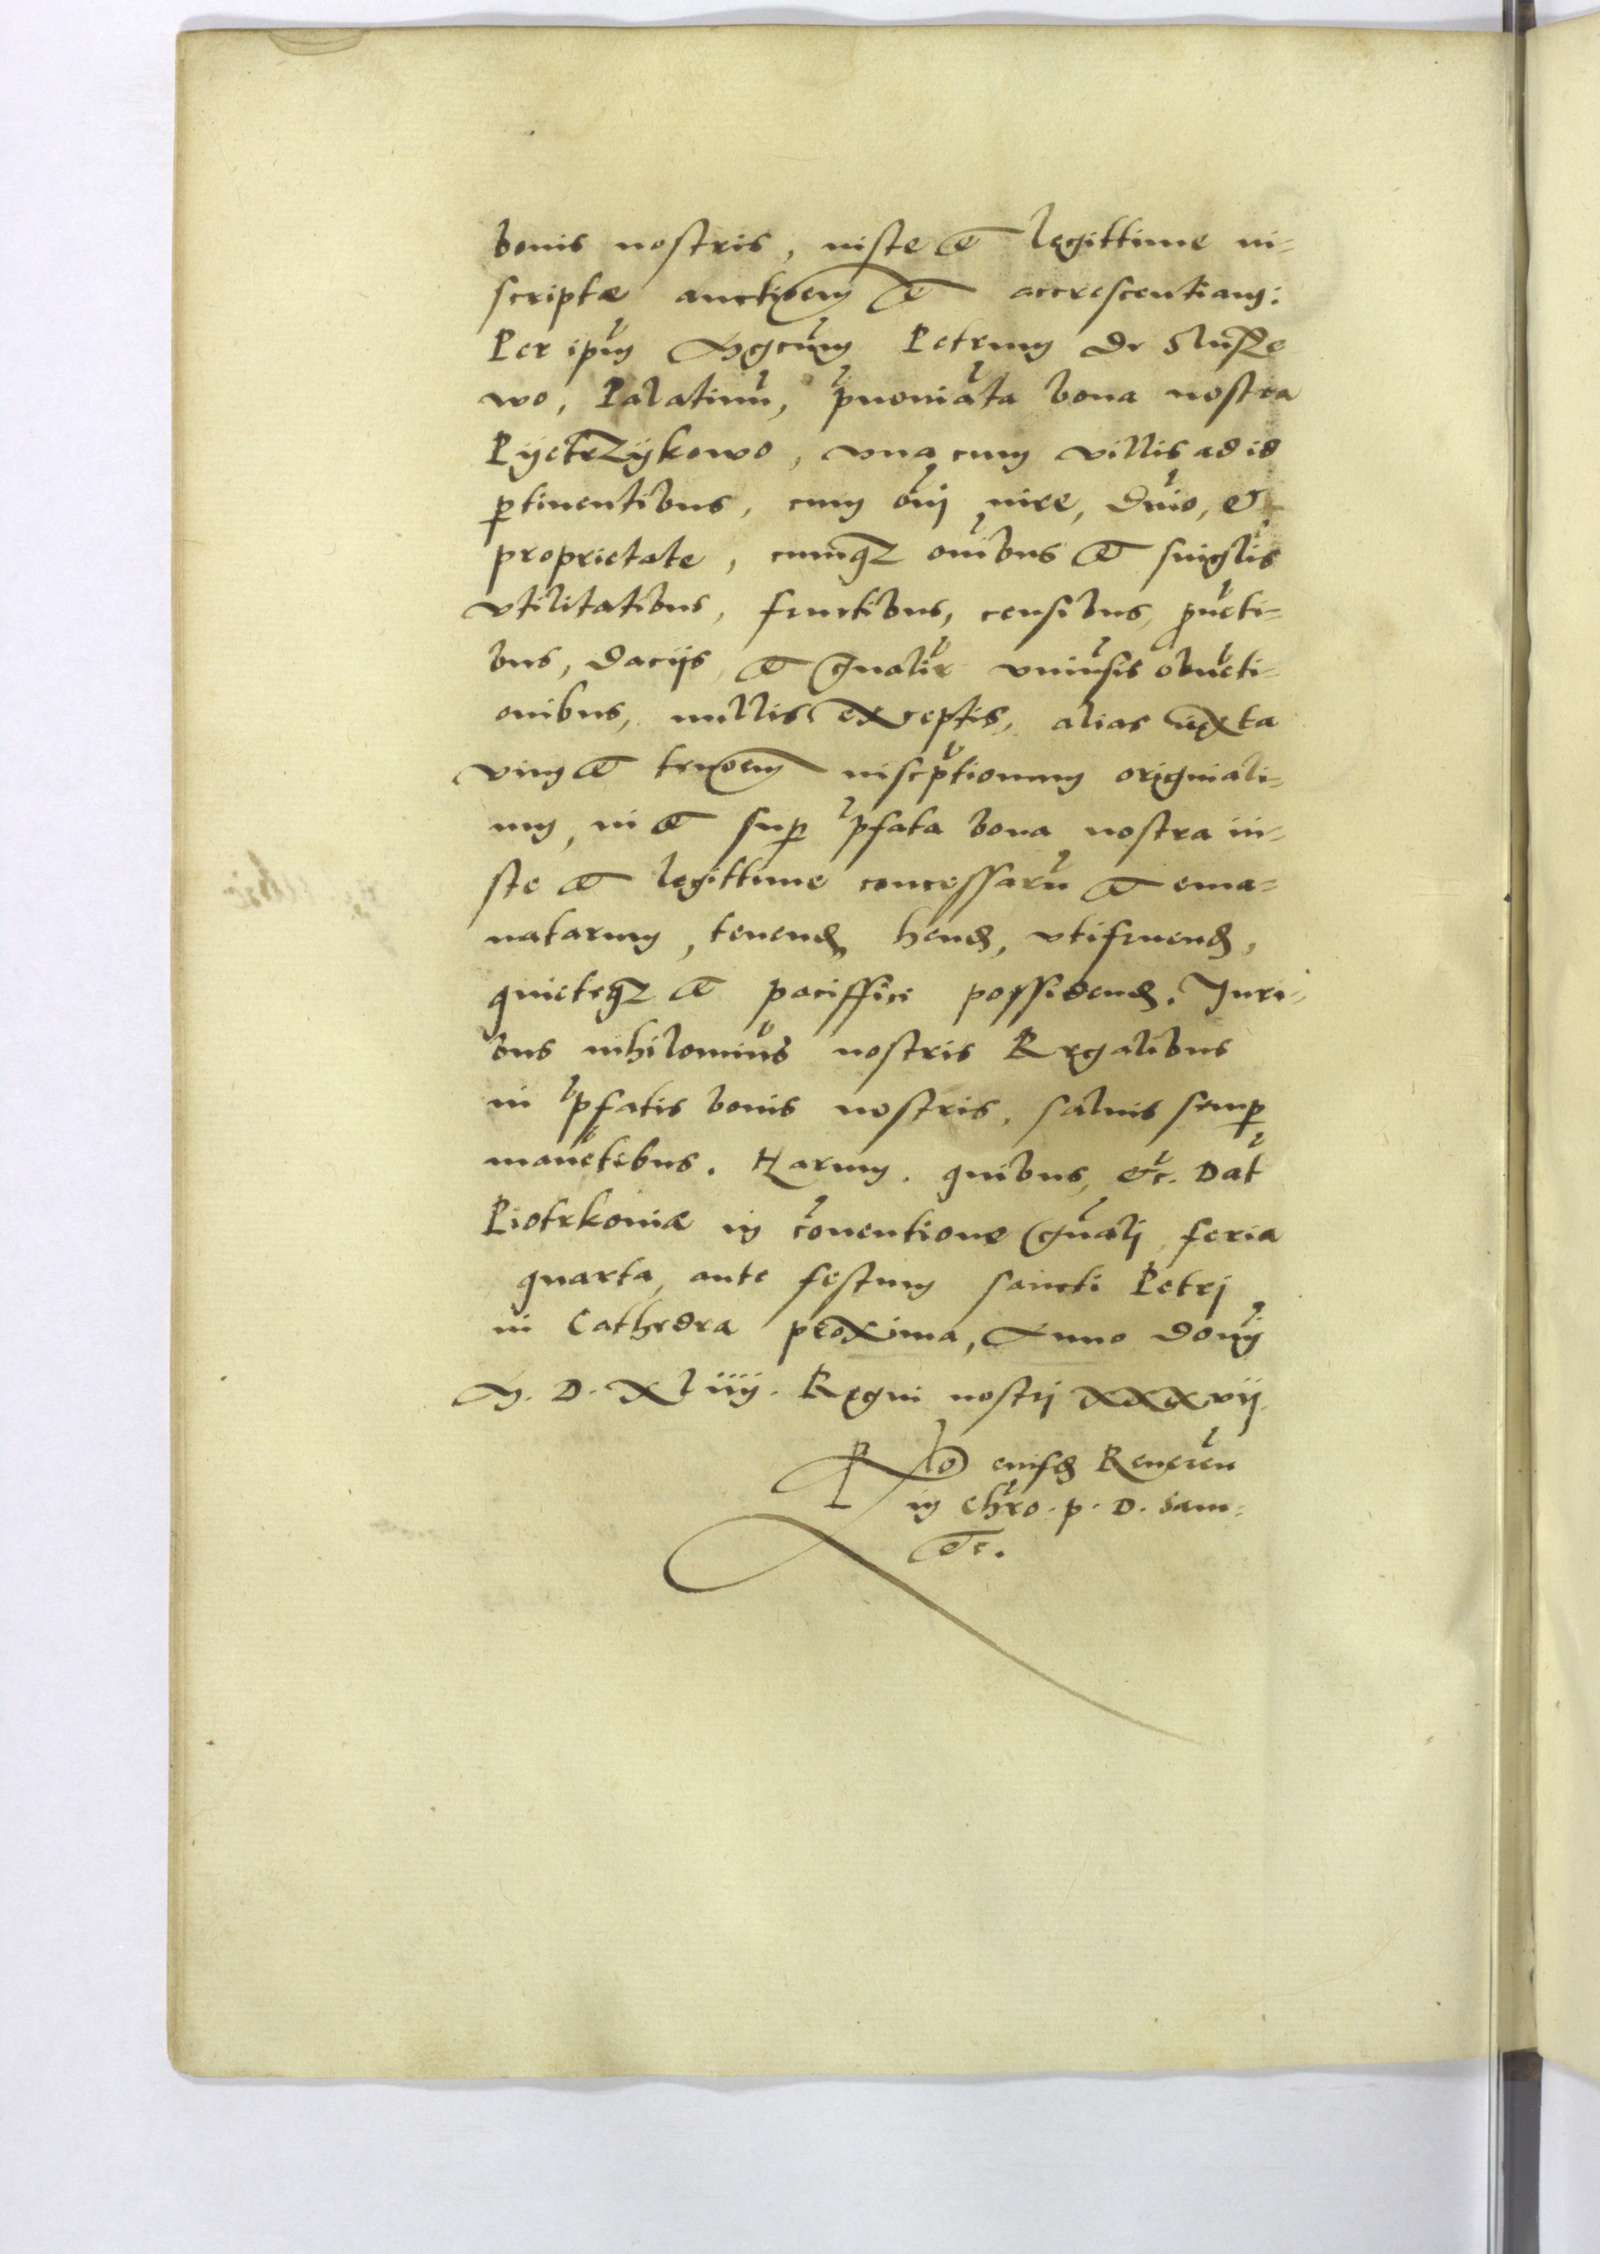 bonis nostris, iuste et legittime in=
scriptæ auctioem et accrescentiam:
Per ipm̃ Mgcum̃ Petrum de Slusze
wo, Palatinũ, p̃noĩata bona nostra
Pyetrzykowo, vna cum villis ad id
ptinentibus, cum oĩj iure, dñio, et
proprietate, cumqz oĩbus et singlis
vtilitatibus, fructibus, censibus, prouẽti=
bus, dacijs, et gñalir vniũsis obuẽti=
onibus, nullis exceptis, alias iuxta
vim et tenoem inscp̃tionum originali=
um, in et sup p̃fata bona nostra iu=
ste et legittime concessarũ et ema=
natarum, tenend hend, vtifruend,
quieteqz et paciffici possidend. Juri=
bus nihilomiũs nostris Regalibus
in p̃fatis bonis nostris, saluis semp
manẽtibus. Harum quibus, etc. Dat̃
Piotrkoniæ in cõnentione gñalj feria
quarta, ante festum sancti Petrj
in Cathedra proxima, Anno domj̃
M. D. XLiiij. Regni nostrj xxxvij.
Rlo eiusd Reueren̄
in Chr̃o. p. D. Sam=
etc.